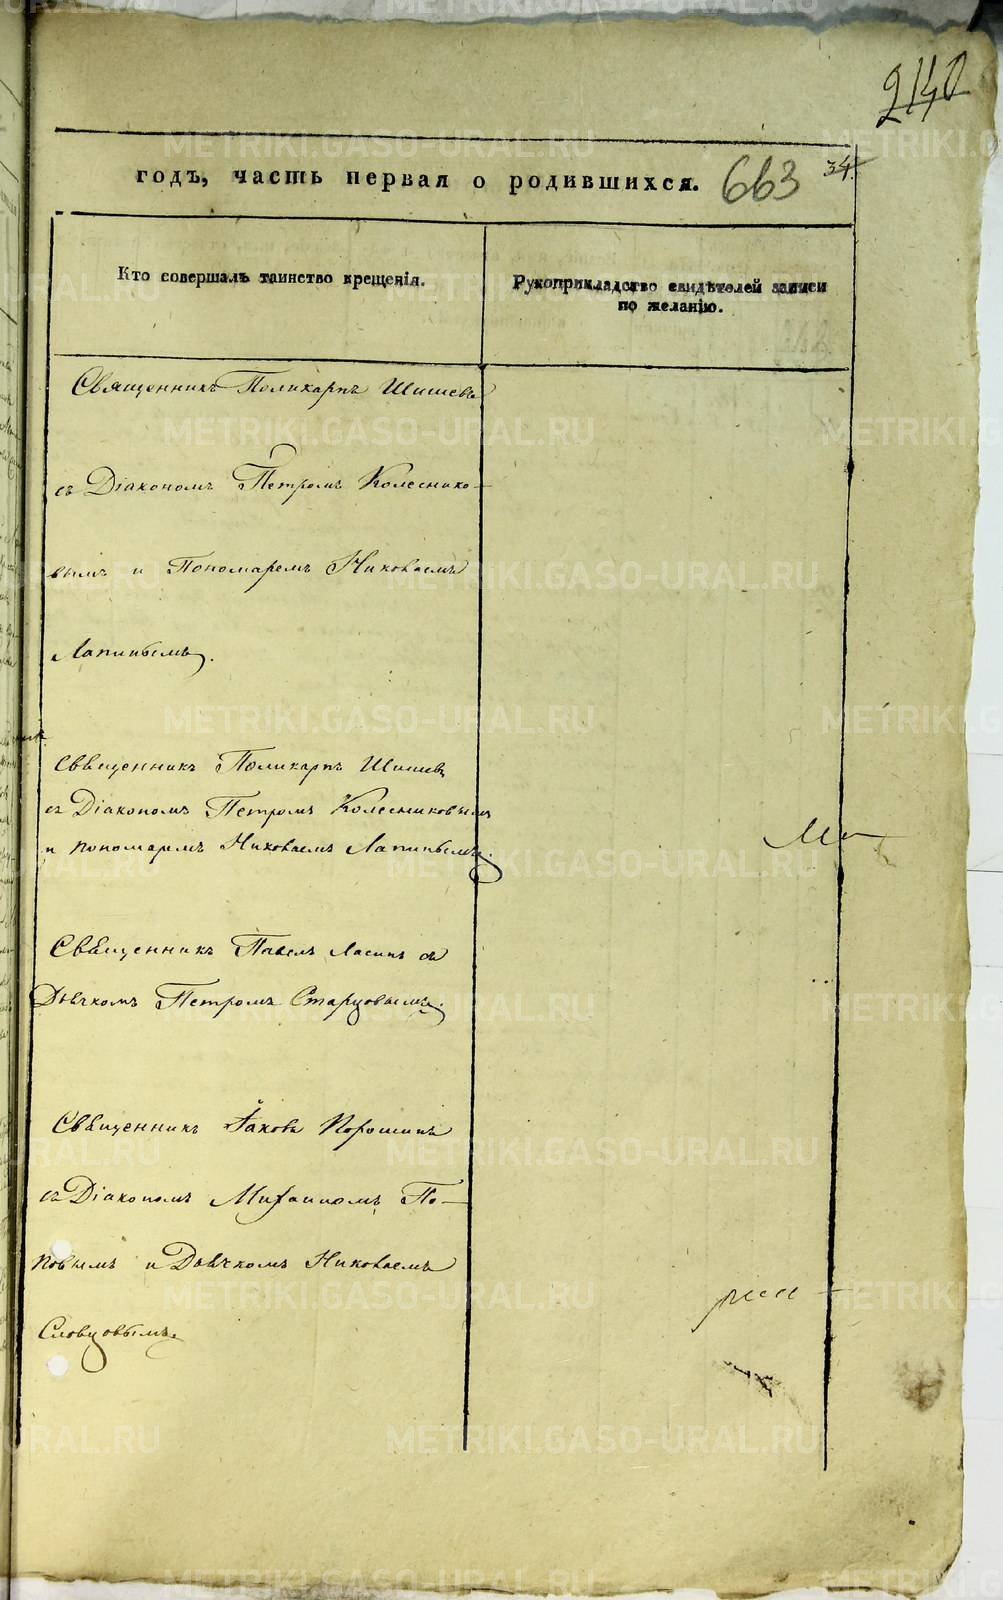 2140
годъ, часть первая о родившихся. 663 34.
Кто совершалъ таинство крещенія.
Рукоприкладство свидѣтелей записи
по желанію.
Священникъ Поликарпъ Шишевъ
съ Діакономъ Петромъ Колеснико-
вымъ и Пономаремъ Николаемъ
Лапинымъ.
Священникъ Поликарпъ Шишевъ
съ Діакономъ Петромъ Колесниковымъ
и пономаремъ Николаемъ Лапинымъ.
Священникъ Павелъ съ
Дьячкомъ Петромъ Старцовымъ.
Священникъ Іаковъ Порошинъ
съ Діакономъ Михаиломъ По-
повымъ и Дьячкомъ Николаемъ
Словцовымъ.
METRIKI.GASO-URAL.RU